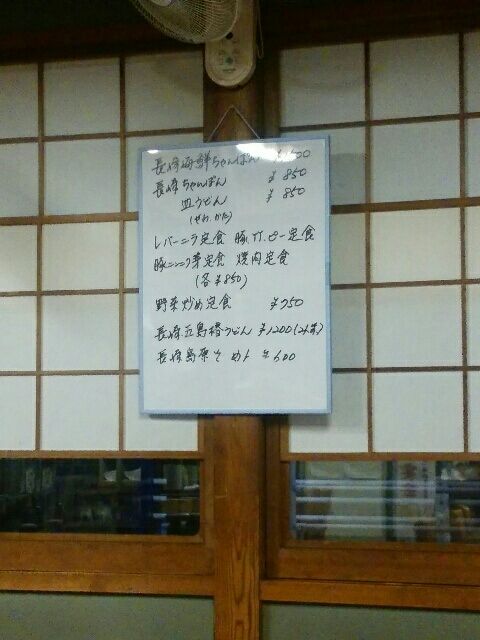 長崎海鮮ちゃんぽん
長崎ちゃんぽん ¥850
皿うどん ¥850
(やわ、かた)
レバーニラ定食 豚、ガ、ピー定食
豚ニンニク芽定食 焼肉定食
(各¥850)
野菜炒め定食 ¥750
長崎五島椿うどん ¥1200(2人前)
長崎島原そ めん ¥600